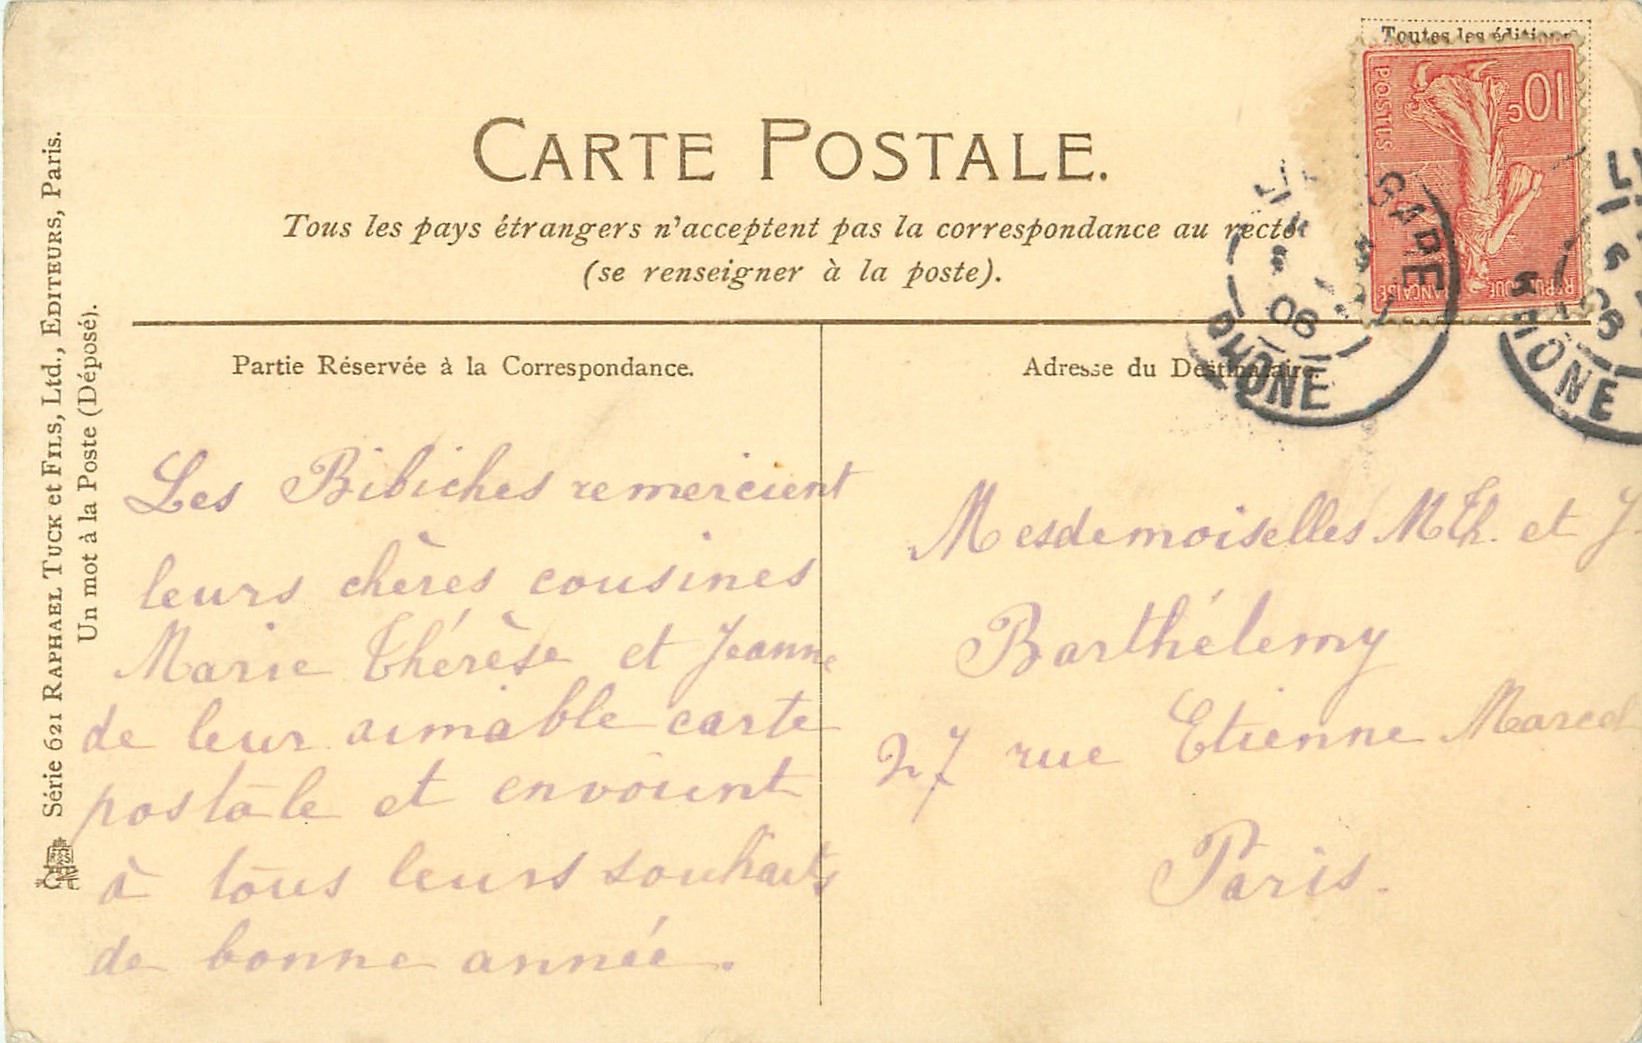 Toutes les éditions
10c
POSTES
RÉPUBLIQUE FRANÇAISE
CARTE POSTALE.
Tous les pays étrangers n'acceptent pas la correspondance au recto
(se renseigner à la poste).
GARE
06
RHONE
LY
RHONE
Partie Réservée à la Correspondance.
Les Bibiches remercient
leurs chères cousines
Marie Thérèse et Jeanne
de leur aimable carte
postale et envoient
à tous leurs souhaits
de bonne année.
Adresse du Destinataire.
Mesdemoiselles M Th. et J.
Barthélemy
27 rue Etienne Marcel
Paris.
Série 621 RAPHAEL TUCK et FILS, Ltd., EDITEURS, Paris.
Un mot à la Poste (Déposé).